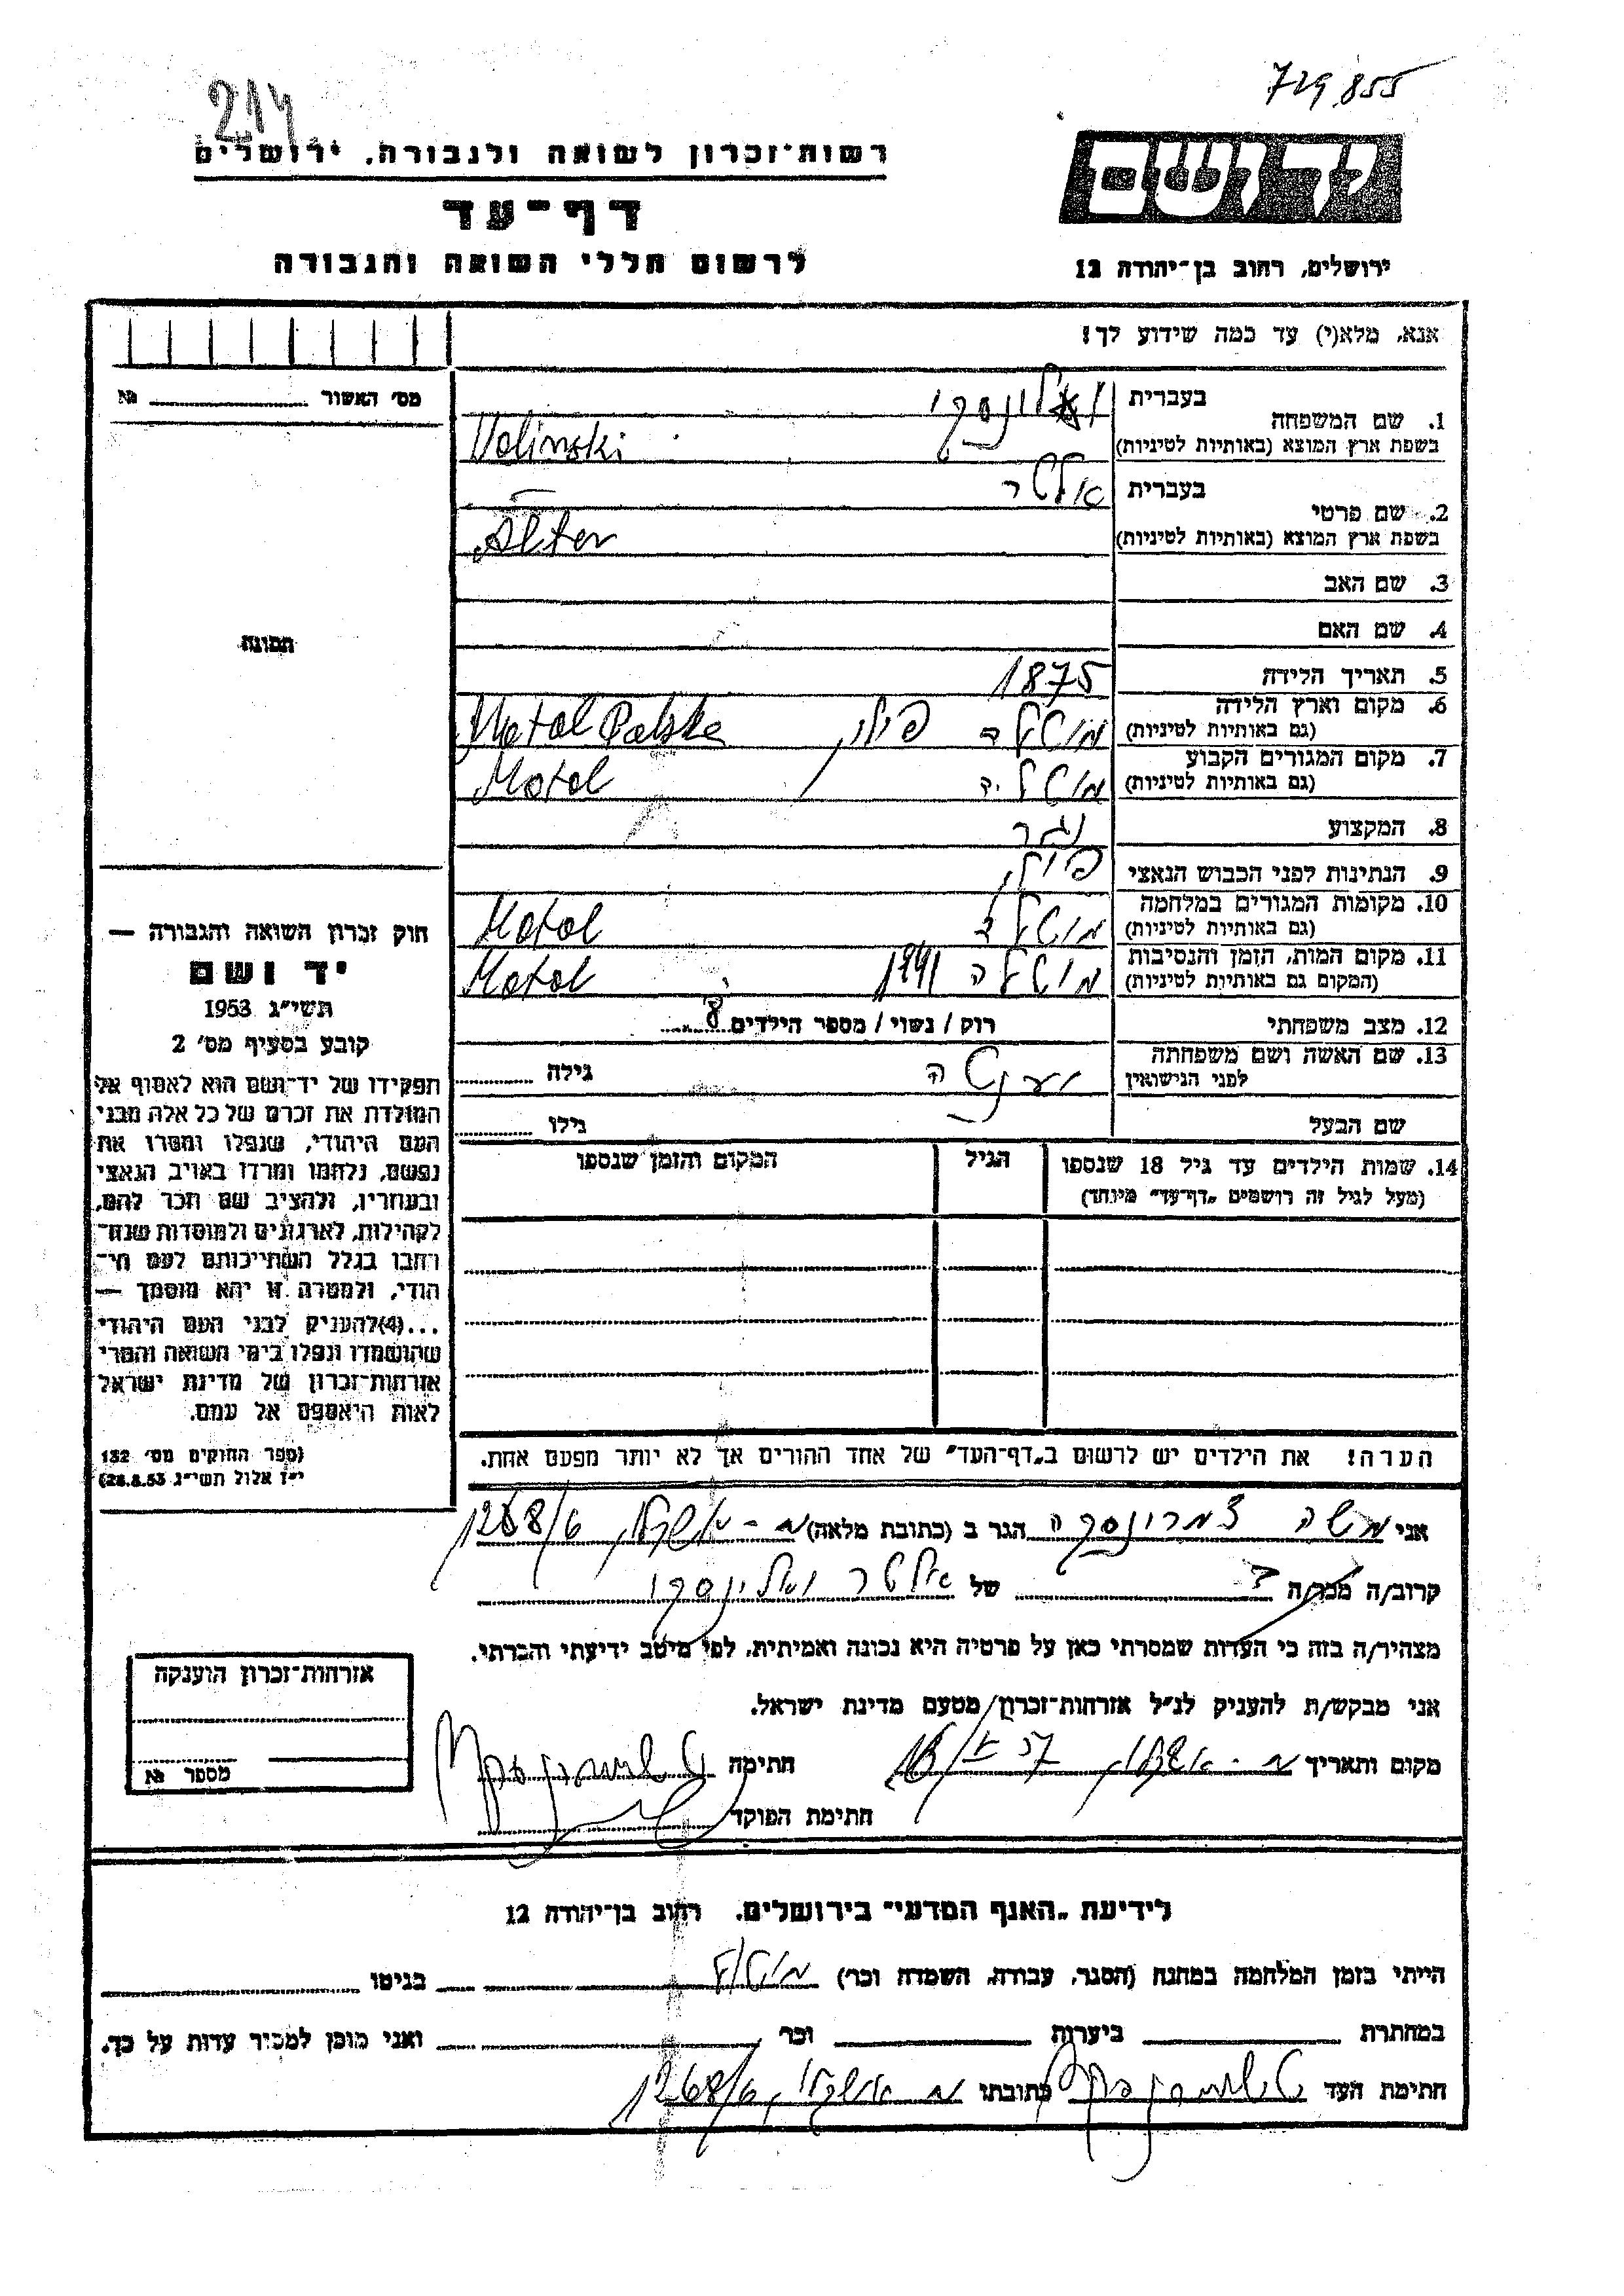 729855
214
רשות־זכרון לשואה ולגבורה, ירושלים
דף־עד
לרשום חללי השואה והגבורה
יד ושם
ירושלים, רחוב בן־יהודה 12
אנא, מלא(י) עד כמה שידוע לך!
מס׳ האשור № 
1. שם המשפחה
בעברית
בשפת ארץ המוצא (באותיות לטיניות) Volinski
2. שם פרטי
בעברית אלטר
בשפת ארץ המוצא (באותיות לטיניות) Alter
3. שם האב
4. שם האם
תמונה
5. תאריך הלידה 1875
6. מקום וארץ הלידה מוטלה פולין Motol Polska
(גם באותיות לטיניות)
7. מקום המגורים הקבוע Motol
(גם באותיות לטיניות)
8. המקצוע נגר
9. הנתינות לפני הכבוש הנאצי
10. מקומות המגורים במלחמה Motol
(גם באותיות לטיניות)
11. מקום המות, הזמן והנסיבות מוטלה 1941 Motol
(המקום גם באותיות לטיניות)
12. מצב משפחתי רוק / נשוי / מספר הילדים 8
13. שם האשה ושם משפחתה גילה
לפני הנישואין
שם הבעל גילו
14. שמות הילדים עד גיל 18 שנספו הגיל המקום והזמן שנספו
(מעל לגיל זה רושמים „דף־עד״ מיוחד)
חוק זכרון השואה והגבורה —
יד ושם
תשי״ג 1953
קובע בסעיף מס׳ 2
תפקידו של יד־ושם הוא לאסוף אל
המולדת את זכרם של כל אלה מבני
העם היהודי, שנפלו ומסרו את
נפשם, נלחמו ומרדו באויב הנאצי
ובעוזריו, ולהציב שם וזכר להם,
לקהילות, לארגונים ולמוסדות שנח־
רבו בגלל השתייכותם לעם הי־
הודי, ולמטרה זו יהא מוסמך —
...(4)להעניק לבני העם היהודי
שהושמדו ונפלו בימי השואה והמרי
אזרחות־זכרון של מדינת ישראל
לאות היאספם אל עמם.
(ספר החוקים מס׳ 132
י״ז אלול תשי״ג 28.8.53)
הערה! את הילדים יש לרשום ב„דף־העד״ של אחד ההורים אך לא יותר מפעם אחת.
אני משה הגר ב (כתובת מלאה) 1268/6
קרוב/ה מכר/ה של אלטר וולינסקי
מצהיר/ה בזה כי העדות שמסרתי כאן על פרטיה היא נכונה ואמיתית, לפי מיטב ידיעתי והכרתי.
אני מבקש/ת להעניק לנ״ל אזרחות־זכרון מטעם מדינת ישראל.
מקום ותאריך חתימה
חתימת הפוקד
אזרחות־זכרון הוענקה
מספר №
לידיעת „האגף המדעי״ בירושלים, רחוב בן־יהודה 12
הייתי בזמן המלחמה במחנה (הסגר, עבודה, השמדה וכו׳) בגיטו
במחתרת ביערות וכו׳ ואני מוכן למסור עדות על כך.
חתימת העד כתובתו 1268/6